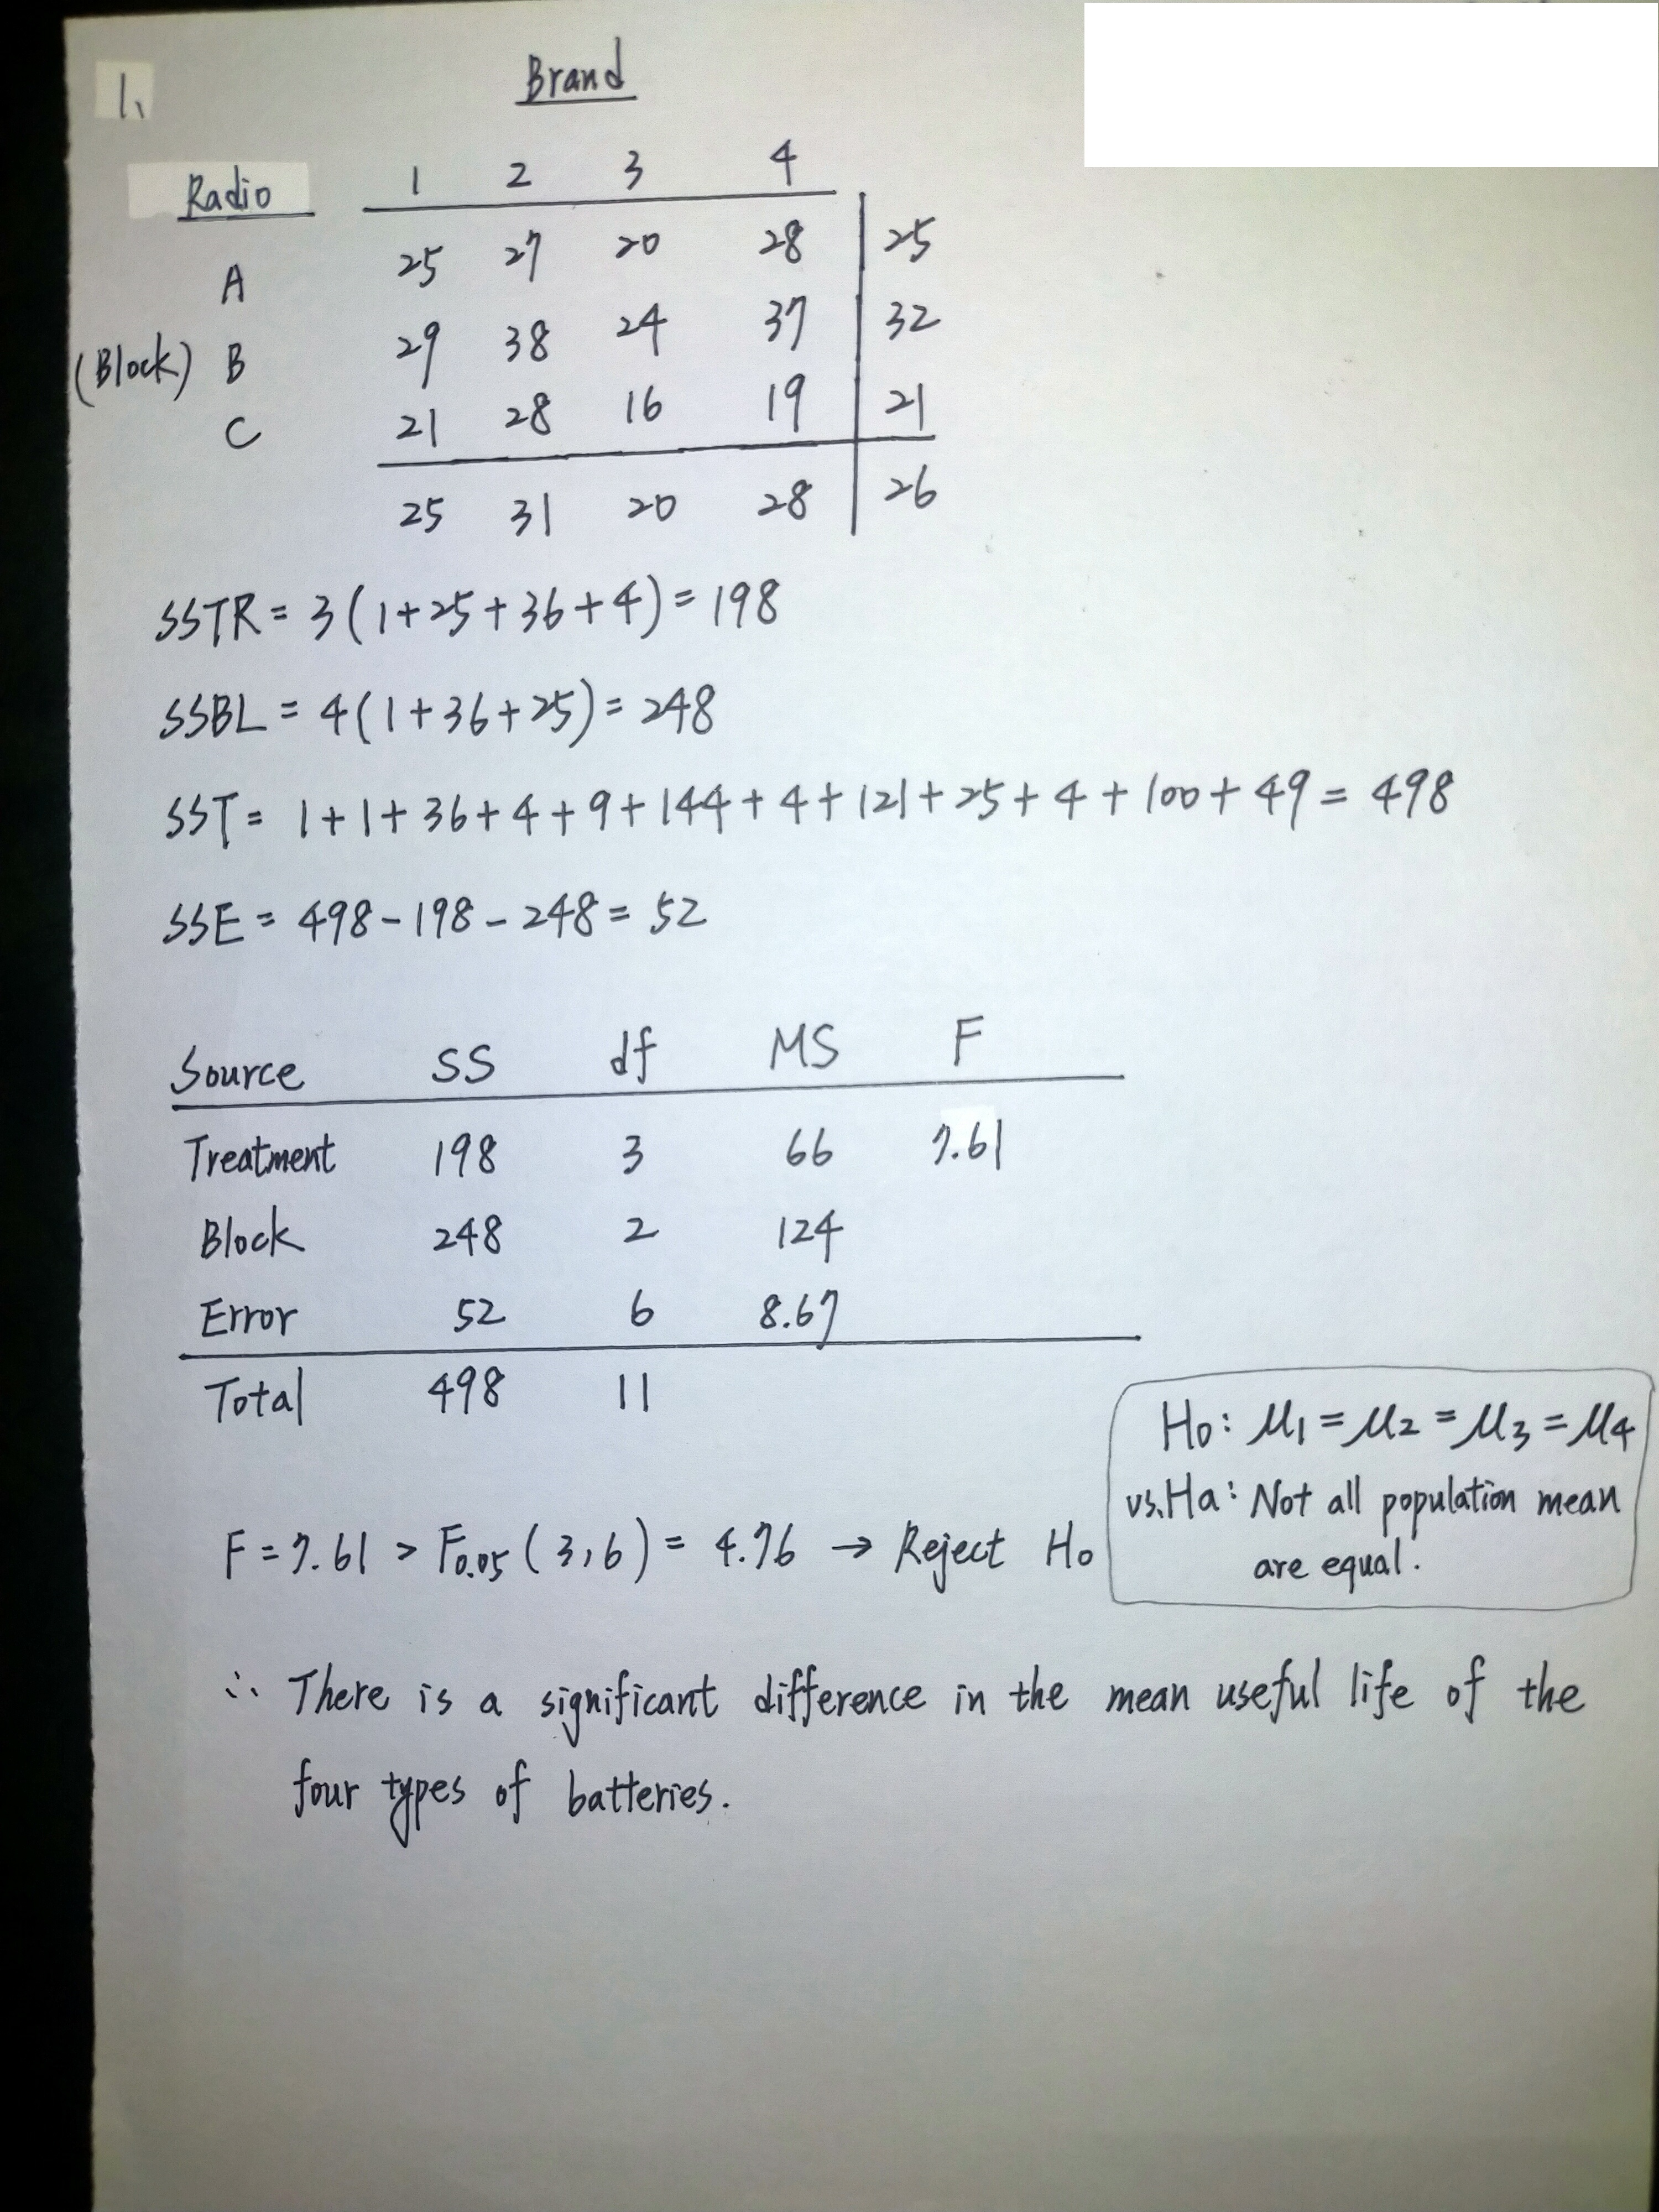 1.
Brand
Radio 1 2 3 4
A 25 27 20 28 25
(Block) B 29 38 24 37 32
C 21 28 16 19 21
25 31 20 28 26
SSTR = 3(1+25+36+4) = 198
SSBL = 4(1+36+25) = 248
SST = 1+1+36+4+9+144+4+121+25+4+100+49 = 498
SSE = 498-198-248 = 52
Source SS df MS F
Treatment 198 3 66 7.61
Block 248 2 124
Error 52 6 8.67
Total 498 11
H₀: μ₁ = μ₂ = μ₃ = μ₄
vs. Ha: Not all population mean
are equal.
F = 7.61 > F₀.₀₅(3,6) = 4.76 → Reject H₀
∴ There is a significant difference in the mean useful life of the
four types of batteries.